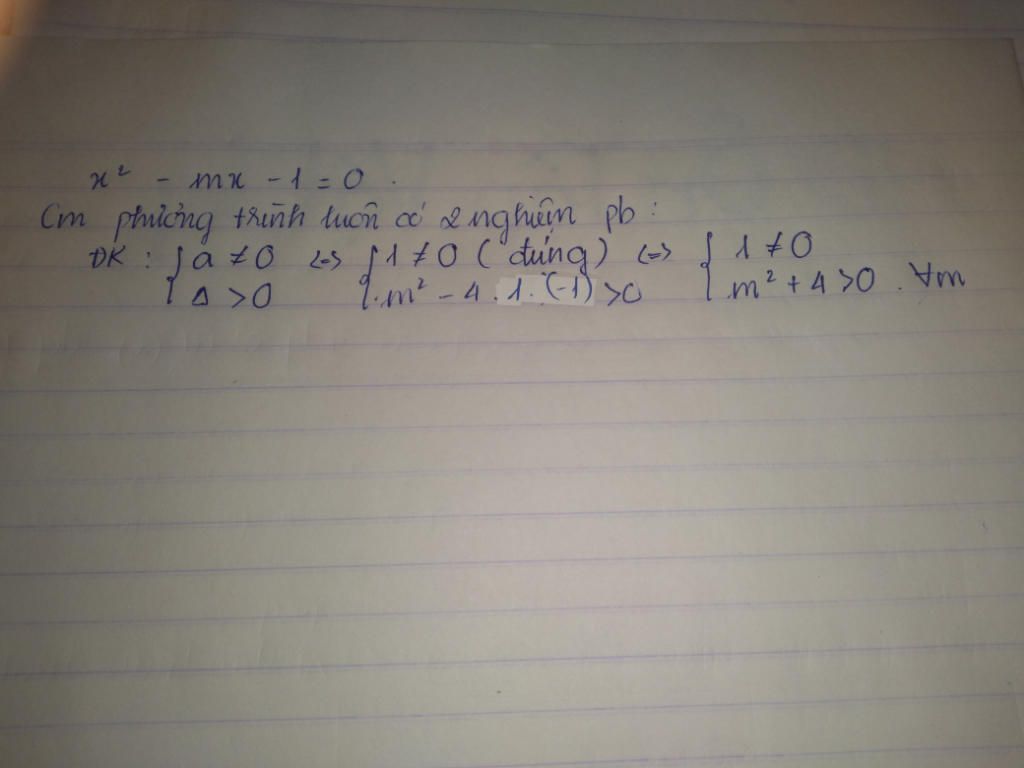 x² - mx - 1 = 0 .
Cm phương trình luôn có 2 nghiệm pb :
ĐK : { a ≠ 0 <=> { 1 ≠ 0 ( đúng ) <=> { 1 ≠ 0
Δ > 0 m² - 4 . 1 . (-1) > 0 m² + 4 > 0 . ∀m